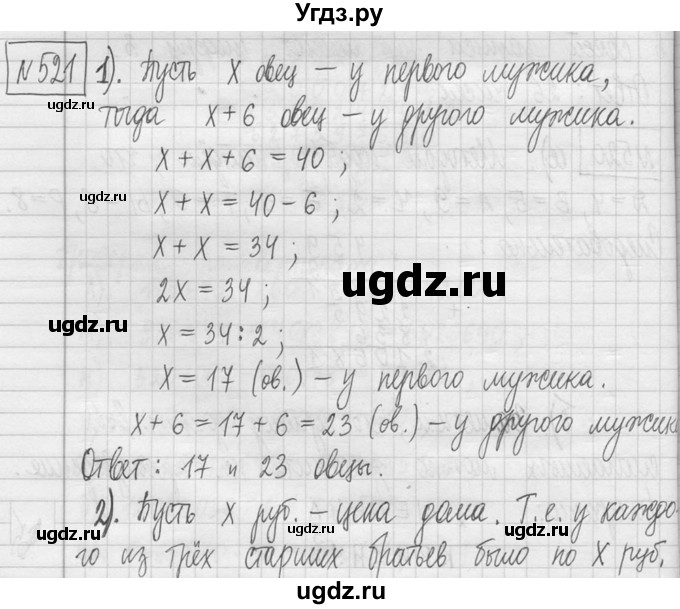 Угдз.ру
№521 1). Пусть x овец – у первого мужика,
тогда x+6 овец – у другого мужика.
x+x+6=40;
gdz.ru
x+x=40-6;
x+x=34;
ugdz.ru
2x=34;
gdz.ru
ugdz.ru
x=34:2;
x=17 (ов.) – у первого мужика.
x+6=17+6=23 (ов.) – у другого мужик
Ответ: 17 и 23 овцы.
ugdz.ru
ugdz.ru
2). Пусть x руб. – цена дома. Т.е. у каждо-
го из трёх старших братьев было по x руб.
ugdz.ru